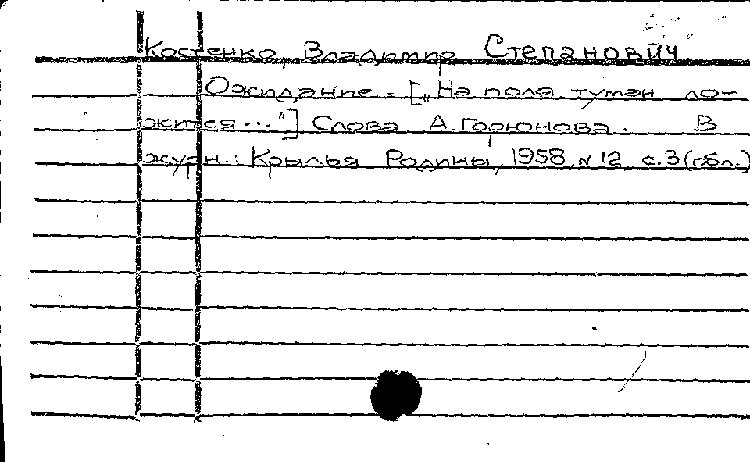 Костенко, Владимир Степанович
Ожидание. - [„На поля туман ло-
жится..."] Слова А. Горюнова. В
журн.: Крылья Родины, 1958, № 12, с. 3 (обл.)